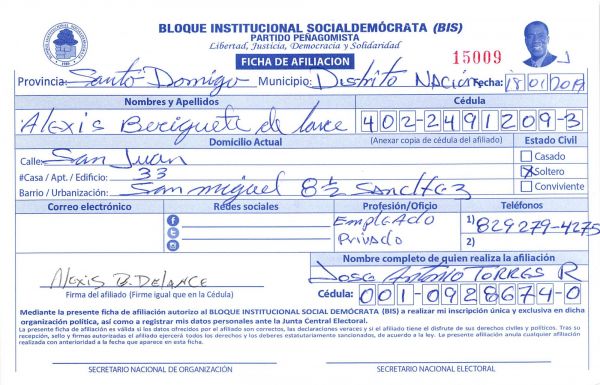 BLOQUE INSTITUCIONAL SOCIALDEMÓCRATA (BIS)
PARTIDO PEÑAGOMISTA
Libertad, Justicia, Democracia y Solidaridad
FICHA DE AFILIACION
15009
Provincia: Santo Domigo Municipio: Distrito Nación Fecha: 18/01/2019
Nombres y Apellidos
Cédula
Alexis Beriguete de lance
402-2491209-3
Domicilio Actual
(Anexar copia de cédula del afiliado)
Estado Civil
Calle: San Juan
Casado
#Casa / Apt. / Edificio: 33
Soltero
Barrio / Urbanización: San miguel 8½ Sanchez
Conviviente
Correo electrónico
Redes sociales
Profesión/Oficio
Teléfonos
Empleado
Privado
1) 829279-4275
2)
Nombre completo de quien realiza la afiliación
Jose Antonio Torres R
Alexis B. Delance
Firma del afiliado (Firme igual que en la Cédula)
Cédula: 001-0928674-0
Mediante la presente ficha de afiliación autorizo al BLOQUE INSTITUCIONAL SOCIAL DEMÓCRATA (BIS) a realizar mi inscripción única y exclusiva en dicha
organización política, así como a registrar mis datos personales ante la Junta Central Electoral.
La presente ficha de afiliación es válida si los datos ofrecidos por el afiliado son correctos, las declaraciones veraces y si el afiliado tiene el disfrute de sus derechos civiles y políticos. Tras su
recepción, sello y firmas autorizadas el afiliado ejercerá todos los derechos y los deberes estatutariamente sancionados, de acuerdo a la ley. La presente afiliación anula cualquier afiliación
realizada con anterioridad a la fecha que aparece en esta ficha.
SECRETARIO NACIONAL DE ORGANIZACIÓN
SECRETARIO NACIONAL ELECTORAL